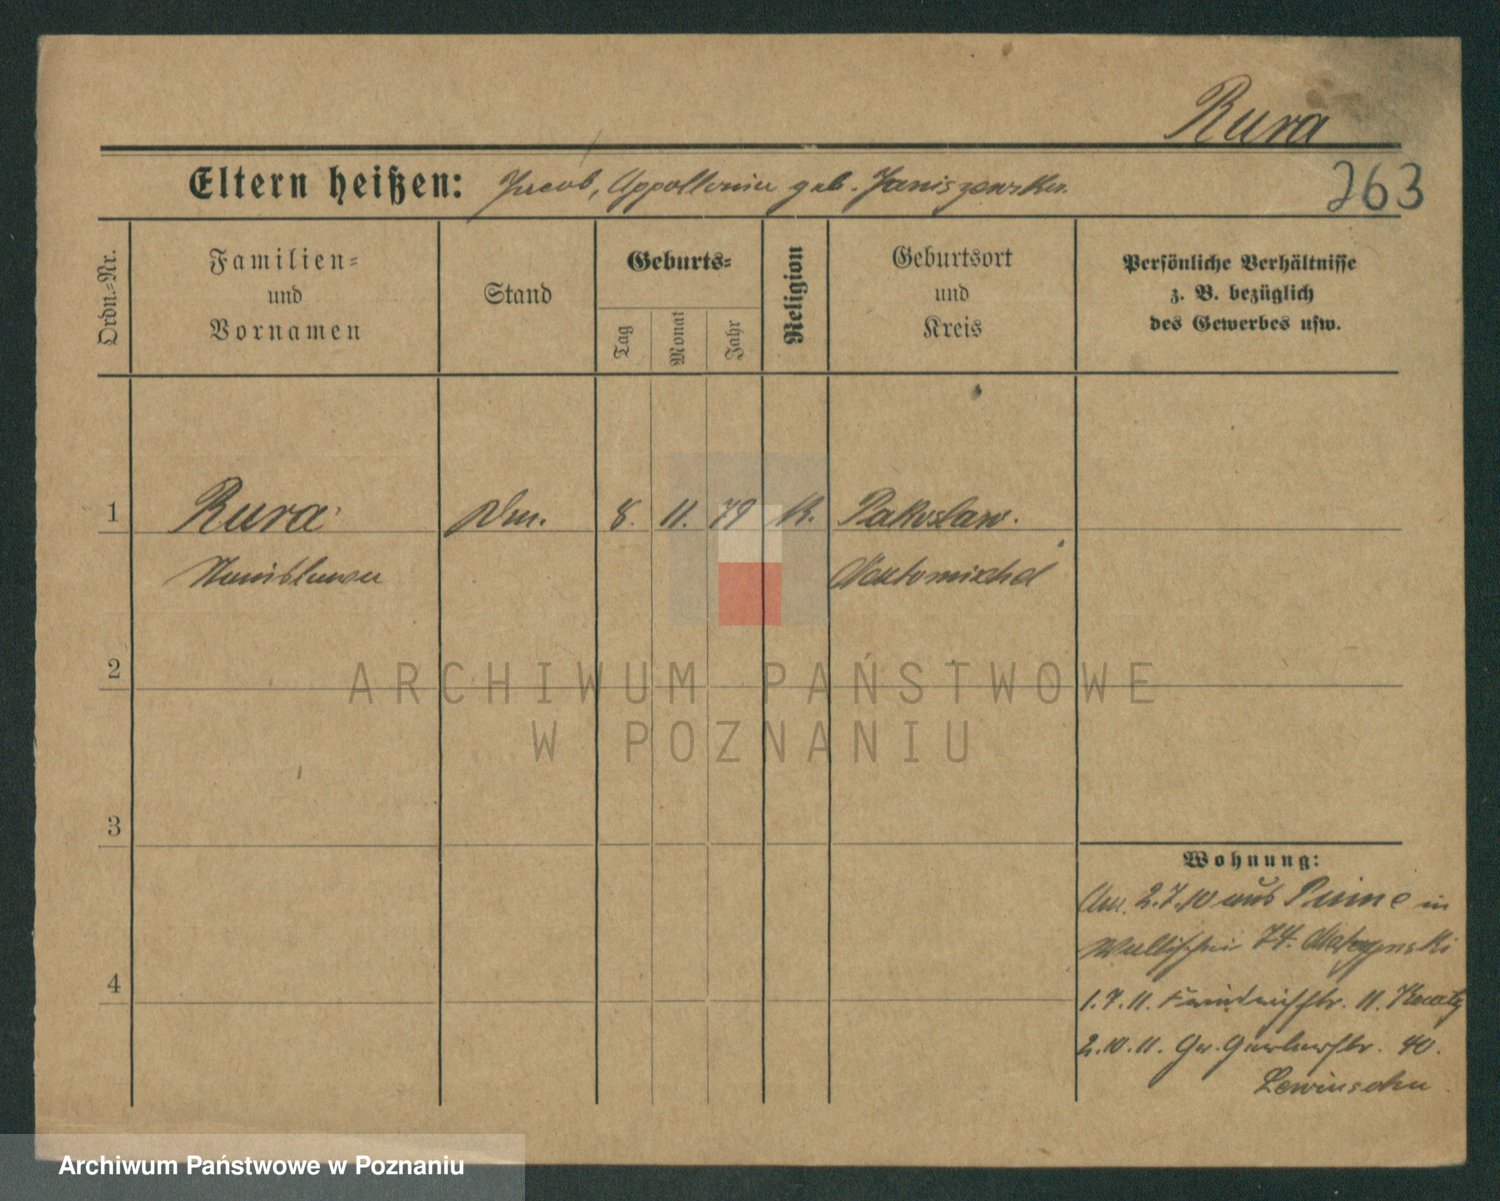 Rura
263
Eltern heißen: Jacob, Appollonia geb. Janiszewska
Ordn.-Nr.
Familien-
und
Vornamen
Stand
Geburts-
Tag
Monat
Jahr
Religion
Geburtsort
und
Kreis
Persönliche Verhältnisse
z. B. bezüglich
des Gewerbes usw.
1
Rura
8. 11. 79 K. Pakoslaw.
Stanislawa
Neutomischel
2
ARCHIWUM PAŃSTWOWE
W POZNANIU
3
Wohnung:
2.7.10 aus Pinne in
Wallischei 74.
4
1.7.11. Friedrichstr. 11.
2.10.11. Gr. Gerberstr. 40.
Lewinsohn
Archiwum Państwowe w Poznaniu